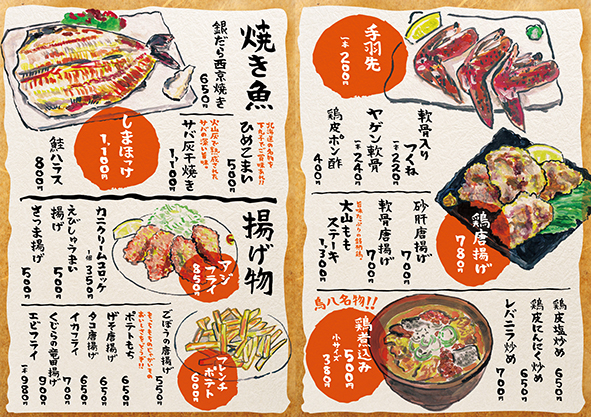 手羽先
一本 200円
軟骨入り
つくね
一本 220円
ヤゲン軟骨
一本 240円
鶏皮ポン酢
400円
鶏唐揚げ
780円
砂肝唐揚げ
700円
軟骨唐揚げ
700円
大山もも
ステーキ
1,300円
鳥八名物!!
鶏煮込み
500円
小サイズ
380円
鶏皮塩炒め
650円
鶏皮にんにく炒め
650円
レバニラ炒め
700円
焼き魚
銀だら西京焼き
650円
しまほっけ
1,100円
北海道の名物を
ひめごまい
500円
火山灰で熟成された
サバの深い旨味。
サバ灰干焼き
1,100円
鮭ハラス
800円
揚げ物
アジ
フライ
850円
カニクリームコロッケ
一個 350円
えびしゅうまい
揚げ
500円
さつま揚げ
500円
フレンチ
ポテト
600円
ごぼうの唐揚げ
550円
ポテトもち
550円
げそ唐揚げ
650円
タコ唐揚げ
650円
イカフライ
700円
くじらの竜田揚げ
900円
エビフライ
一本 980円